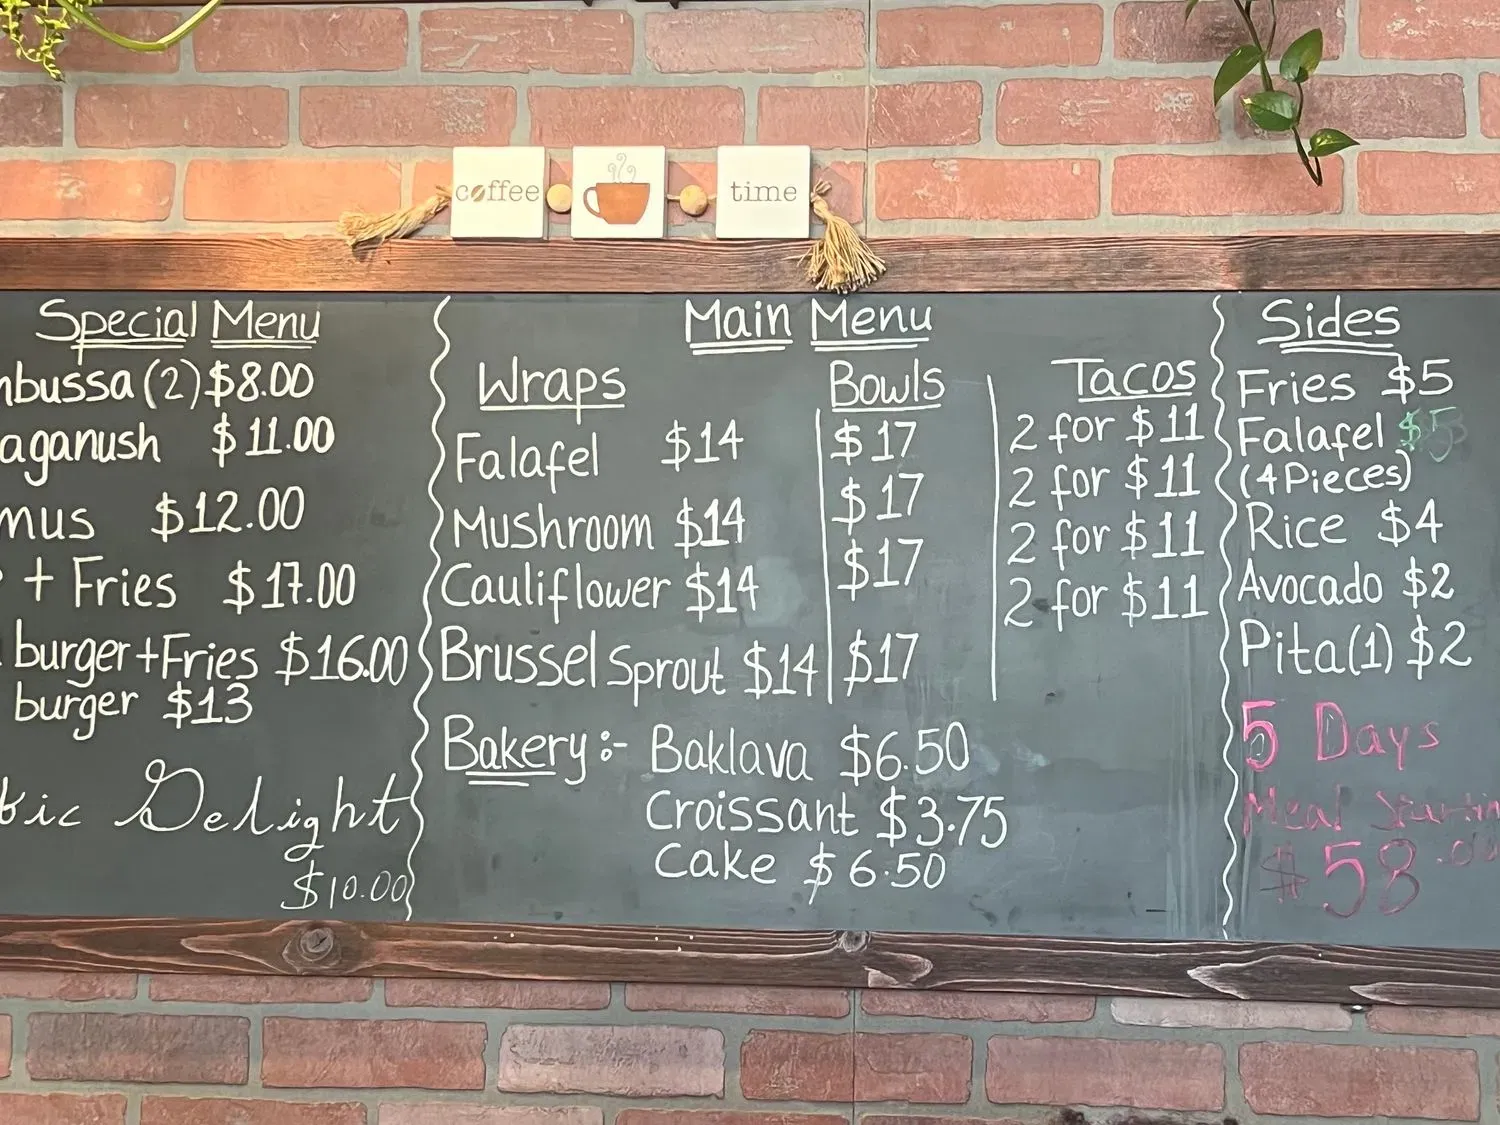 coffee time
Special Menu
mbussa (2) $8.00
aganush $11.00
mus $12.00
+ Fries $17.00
burger + Fries $16.00
burger $13
bic Delight
$10.00
Main Menu
Wraps Bowls Tacos
Falafel $14 $17 2 for $11
Mushroom $14 $17 2 for $11
Cauliflower $14 $17 2 for $11
Brussel Sprout $14 $17 2 for $11
Bakery :- Baklava $6.50
Croissant $3.75
Cake $6.50
Sides
Fries $5
Falafel $5
(4 Pieces)
Rice $4
Avocado $2
Pita (1) $2
5 Days
Meal Startin
$58.00